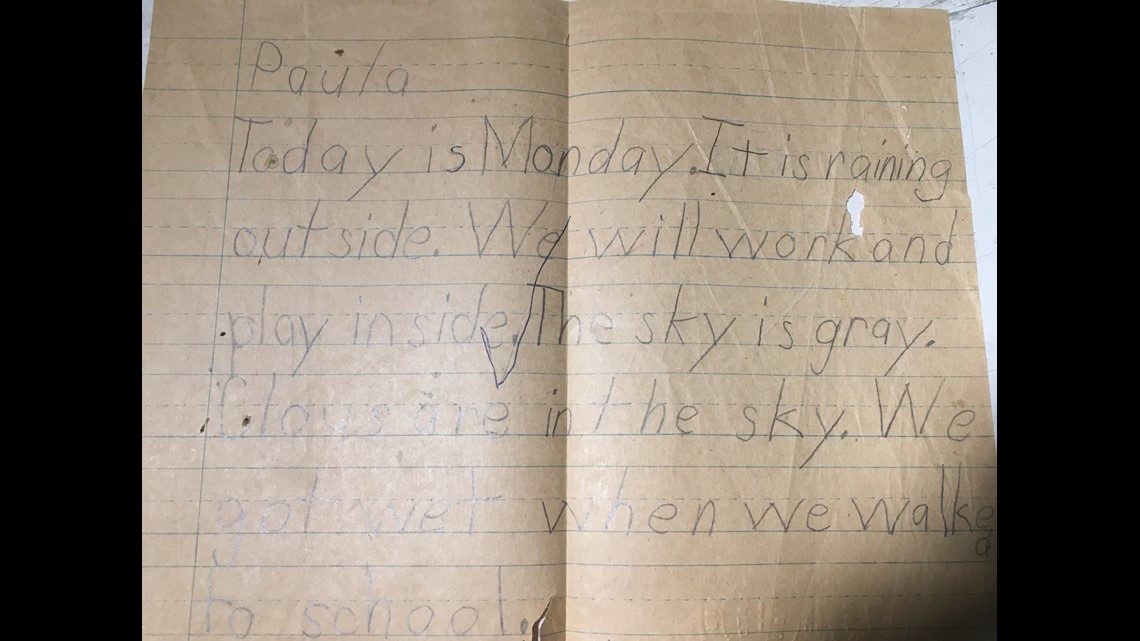 Paula
Today is Monday. It is raining
outside. We will work and
play inside. The sky is gray.
Clouds are in the sky. We
got wet when we walked
to school.